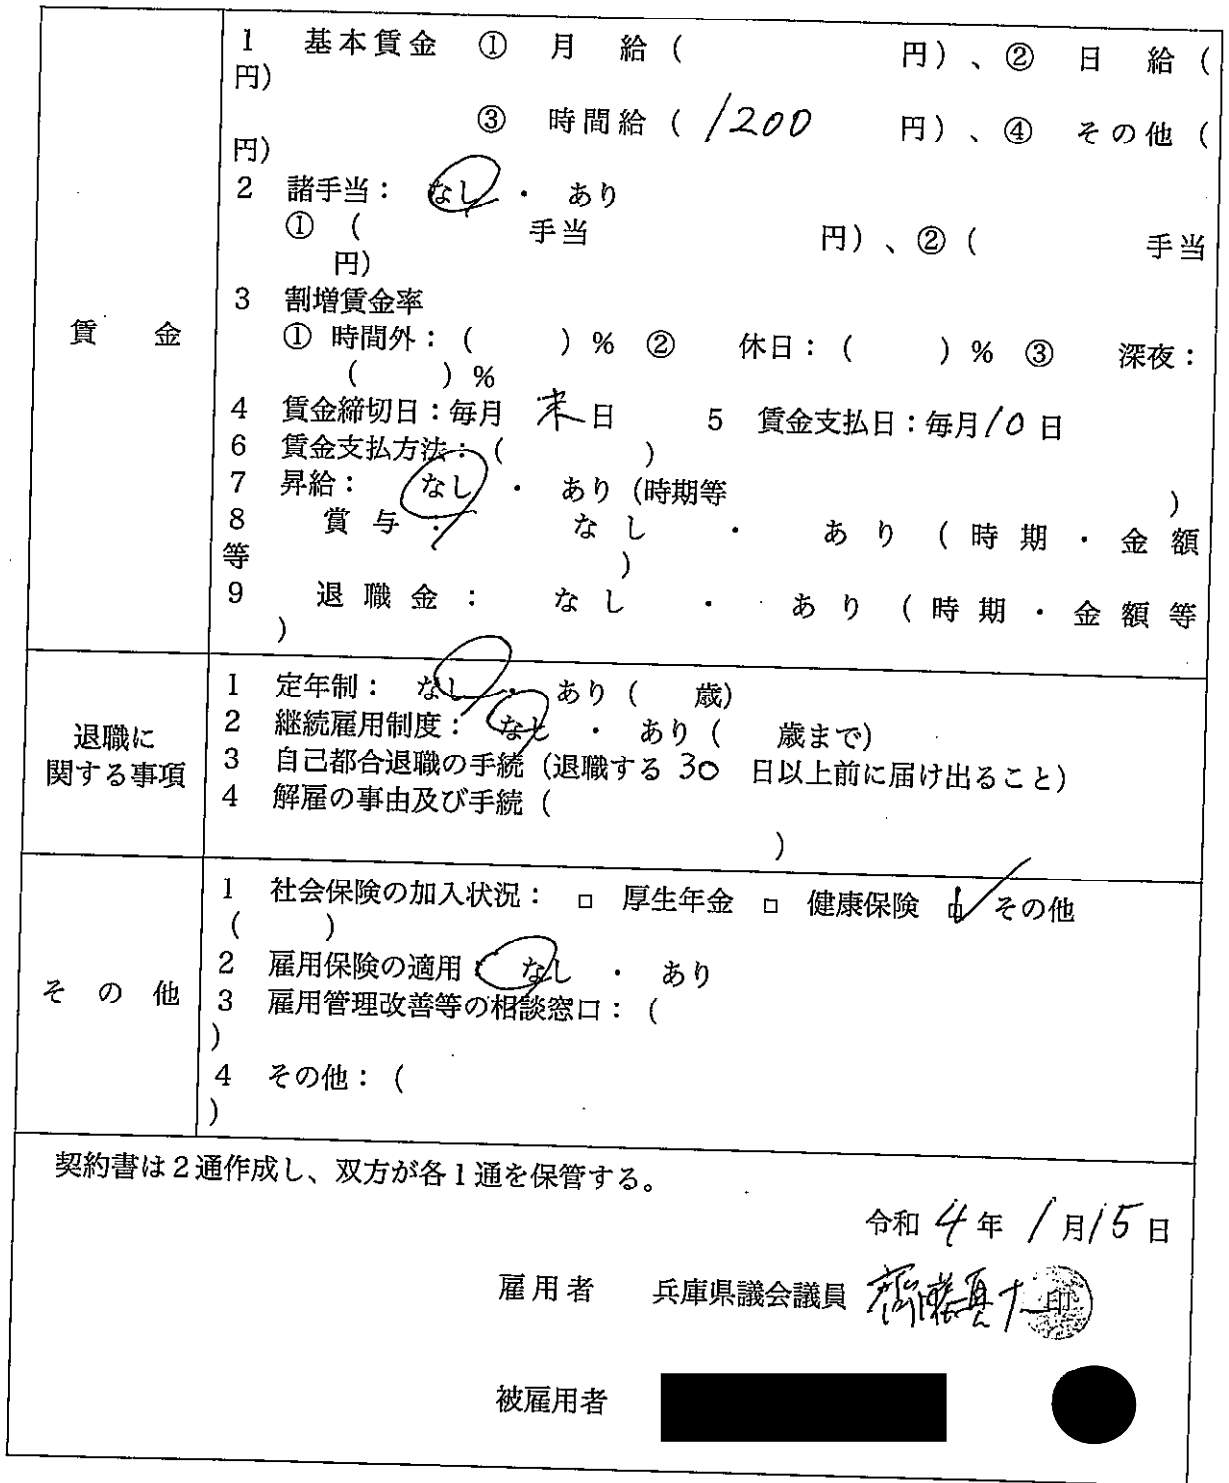 1 基本賃金 ① 月 給 ( 円)、② 日 給 (
円)
③ 時間給 ( 1200 円)、④ その他 (
円)
2 諸手当: なし ・ あり
① ( 手当 円)、② ( 手当
円)
3 割増賃金率
賃 金
① 時間外: ( ) % ② 休日: ( ) % ③ 深夜:
( ) %
4 賃金締切日:毎月 末日 5 賃金支払日:毎月10日
6 賃金支払方法:( )
7 昇給: なし ・ あり (時期等 )
8 賞 与 : な し ・ あ り ( 時 期 ・ 金 額
等 )
9 退 職 金 : な し ・ あ り ( 時 期 ・ 金 額 等
)
退職に
関する事項
1 定年制: なし ・ あり ( 歳)
2 継続雇用制度: なし ・ あり ( 歳まで)
3 自己都合退職の手続 (退職する 30 日以上前に届け出ること)
4 解雇の事由及び手続 (
)
そ の 他
1 社会保険の加入状況: □ 厚生年金 □ 健康保険 ☑ その他
( )
2 雇用保険の適用: なし ・ あり
3 雇用管理改善等の相談窓口: (
)
4 その他: (
)
契約書は2通作成し、双方が各1通を保管する。
令和 4年 1月15日
雇用者 兵庫県議会議員 齋藤真大 印
被雇用者